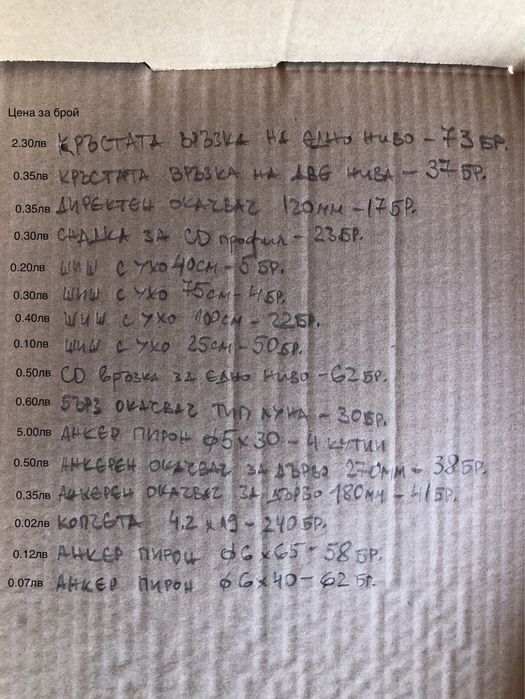 Цена за брой
2.30лв КРЪСТАТА ВРЪЗКА НА ЕДНО НИВО – 73 БР.
0.35лв КРЪСТАТА ВРЪЗКА НА ДВЕ НИВА – 37 БР.
0.35лв ДИРЕКТЕН ОКАЧВАЧ 120ММ – 17 БР.
0.30лв СНАДКА ЗА CD профил – 23 БР.
0.20лв ШИШ С УХО 40СМ – 5 БР.
0.30лв ШИШ С УХО 75СМ – 4 БР.
0.40лв ШИШ С УХО 100СМ – 22 БР.
0.10лв ШИШ С УХО 25СМ – 50 БР.
0.50лв CD ВРЪЗКА ЗА ЕДНО НИВО – 62 БР.
0.60лв БЪРЗ ОКАЧВАЧ ТИП ЛУНА – 30 БР.
5.00лв АНКЕР ПИРОН ф5х30 – 4 КУТИИ
0.50лв АНКЕРЕН ОКАЧВАЧ ЗА ДЪРВО 270ММ – 38 БР.
0.35лв АНКЕРЕН ОКАЧВАЧ ЗА ДЪРВО 180ММ – 41 БР.
0.02лв КОПЧЕТА 4.2 х 19 – 240 БР.
0.12лв АНКЕР ПИРОН ф6х65 – 58 БР.
0.07лв АНКЕР ПИРОН ф6х40 – 62 БР.